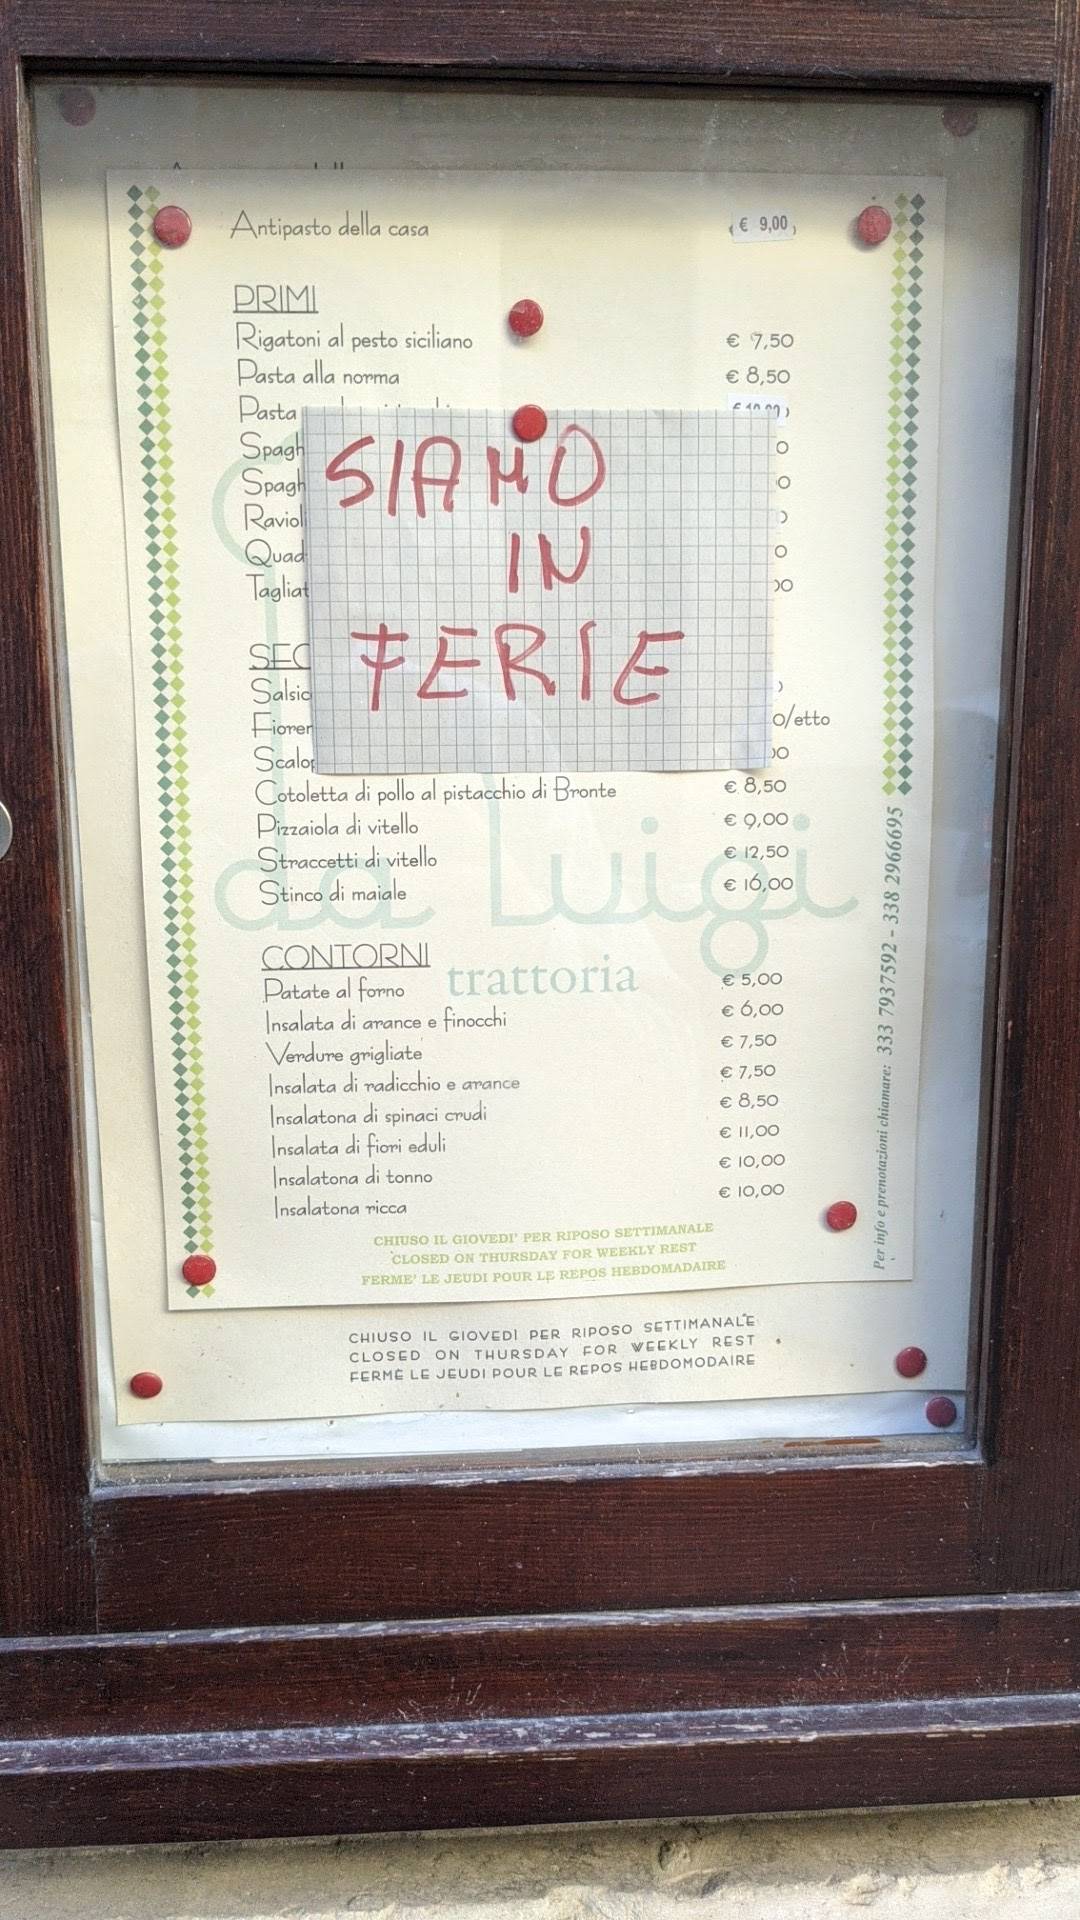 Antipasto della casa € 9,00
PRIMI
Rigatoni al pesto siciliano € 7,50
Pasta alla norma € 8,50
Pasta
SIAMO
IN
FERIE
Cotoletta di pollo al pistacchio di Bronte € 8,50
Pizzaiola di vitello € 9,00
Straccetti di vitello € 12,50
Stinco di maiale € 16,00
da Luigi
trattoria
CONTORNI
Patate al forno € 5,00
Insalata di arance e finocchi € 6,00
Verdure grigliate € 7,50
Insalata di radicchio e arance € 7,50
Insalatona di spinaci crudi € 8,50
Insalata di fiori eduli € 11,00
Insalatona di tonno € 10,00
Insalatona ricca € 10,00
CHIUSO IL GIOVEDI' PER RIPOSO SETTIMANALE
CLOSED ON THURSDAY FOR WEEKLY REST
FERME' LE JEUDI POUR LE REPOS HEBDOMADAIRE
Per info e prenotazioni chiamare: 333 7937592 - 338 2966695
CHIUSO IL GIOVEDÌ PER RIPOSO SETTIMANALE
CLOSED ON THURSDAY FOR WEEKLY REST
FERMÉ LE JEUDI POUR LE REPOS HEBDOMODAIRE